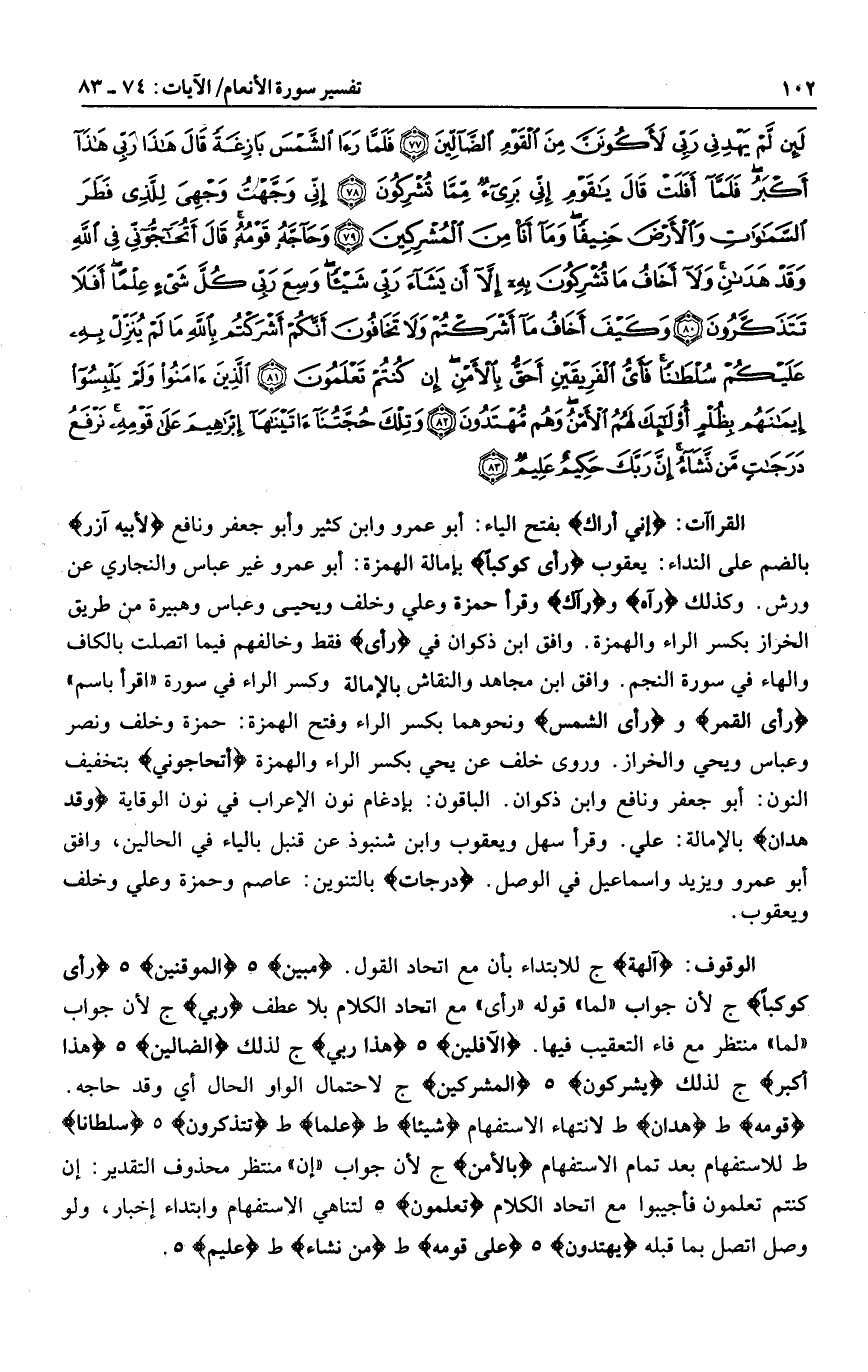 ١٠٢ تفسير سورة الأنعام/ الآيات: ٧٤ ـ ٨٣
لَئِن لَّمْ يَهْدِنِى رَبِّى لَأَكُونَنَّ مِنَ ٱلْقَوْمِ ٱلضَّآلِّينَ ﴿٧٧﴾ فَلَمَّا رَءَا ٱلشَّمْسَ بَازِغَةً قَالَ هَٰذَا رَبِّى هَٰذَآ
أَكْبَرُ ۖ فَلَمَّآ أَفَلَتْ قَالَ يَٰقَوْمِ إِنِّى بَرِىٓءٌ مِّمَّا تُشْرِكُونَ ﴿٧٨﴾ إِنِّى وَجَّهْتُ وَجْهِىَ لِلَّذِى فَطَرَ
ٱلسَّمَٰوَٰتِ وَٱلْأَرْضَ حَنِيفًا ۖ وَمَآ أَنَا۠ مِنَ ٱلْمُشْرِكِينَ ﴿٧٩﴾ وَحَآجَّهُۥ قَوْمُهُۥ ۚ قَالَ أَتُحَٰٓجُّوٓنِّى فِى ٱللَّهِ
وَقَدْ هَدَىٰنِ ۚ وَلَآ أَخَافُ مَا تُشْرِكُونَ بِهِۦٓ إِلَّآ أَن يَشَآءَ رَبِّى شَيْـًٔا ۗ وَسِعَ رَبِّى كُلَّ شَىْءٍ عِلْمًا ۗ أَفَلَا
تَتَذَكَّرُونَ ﴿٨٠﴾ وَكَيْفَ أَخَافُ مَآ أَشْرَكْتُمْ وَلَا تَخَافُونَ أَنَّكُمْ أَشْرَكْتُم بِٱللَّهِ مَا لَمْ يُنَزِّلْ بِهِۦ
عَلَيْكُمْ سُلْطَٰنًا ۚ فَأَىُّ ٱلْفَرِيقَيْنِ أَحَقُّ بِٱلْأَمْنِ ۖ إِن كُنتُمْ تَعْلَمُونَ ﴿٨١﴾ ٱلَّذِينَ ءَامَنُوا۟ وَلَمْ يَلْبِسُوٓا۟
إِيمَٰنَهُم بِظُلْمٍ أُو۟لَٰٓئِكَ لَهُمُ ٱلْأَمْنُ وَهُم مُّهْتَدُونَ ﴿٨٢﴾ وَتِلْكَ حُجَّتُنَآ ءَاتَيْنَٰهَآ إِبْرَٰهِيمَ عَلَىٰ قَوْمِهِۦ ۚ نَرْفَعُ
دَرَجَٰتٍ مَّن نَّشَآءُ ۗ إِنَّ رَبَّكَ حَكِيمٌ عَلِيمٌ ﴿٨٣﴾
القراآت: ﴿إني أراك﴾ بفتح الياء: أبو عمرو وابن كثير وأبو جعفر ونافع ﴿لأبيه آزر﴾
بالضم على النداء: يعقوب ﴿رأى كوكباً﴾ بإمالة الهمزة: أبو عمرو غير عباس والنجاري عن
ورش. وكذلك ﴿رآه﴾ و﴿رآك﴾ وقرأ حمزة وعلي وخلف ويحيى وعباس وهبيرة من طريق
الخراز بكسر الراء والهمزة. وافق ابن ذكوان في ﴿رأى﴾ فقط وخالفهم فيما اتصلت بالكاف
والهاء في سورة النجم. وافق ابن مجاهد والنقاش بالإمالة وكسر الراء في سورة «اقرأ باسم»
﴿رأى القمر﴾ و ﴿رأى الشمس﴾ ونحوهما بكسر الراء وفتح الهمزة: حمزة وخلف ونصر
وعباس ويحي والخراز. وروى خلف عن يحي بكسر الراء والهمزة ﴿أتحاجوني﴾ بتخفيف
النون: أبو جعفر ونافع وابن ذكوان. الباقون: بإدغام نون الإعراب في نون الوقاية ﴿وقد
هدان﴾ بالإمالة: علي. وقرأ سهل ويعقوب وابن شنبوذ عن قنبل بالياء في الحالين، وافق
أبو عمرو ويزيد واسماعيل في الوصل. ﴿درجات﴾ بالتنوين: عاصم وحمزة وعلي وخلف
ويعقوب.
الوقوف: ﴿آلهة﴾ ج للابتداء بأن مع اتحاد القول. ﴿مبين﴾ ه ﴿الموقنين﴾ ه ﴿رأى
كوكباً﴾ ج لأن جواب «لما» قوله «رأى» مع اتحاد الكلام بلا عطف ﴿ربي﴾ ج لأن جواب
«لما» منتظر مع فاء التعقيب فيها. ﴿الآفلين﴾ ه ﴿هذا ربي﴾ ج لذلك ﴿الضالين﴾ ه ﴿هذا
أكبر﴾ ج لذلك ﴿يشركون﴾ ه ﴿المشركين﴾ ج لاحتمال الواو الحال أي وقد حاجه.
﴿قومه﴾ ط ﴿هدان﴾ ط لانتهاء الاستفهام ﴿شيئا﴾ ط ﴿علما﴾ ط ﴿تتذكرون﴾ ه ﴿سلطانا﴾
ط للاستفهام بعد تمام الاستفهام ﴿بالأمن﴾ ج لأن جواب «إن» منتظر محذوف التقدير: إن
كنتم تعلمون فأجيبوا مع اتحاد الكلام ﴿تعلمون﴾ ه لتناهي الاستفهام وابتداء إخبار، ولو
وصل اتصل بما قبله ﴿يهتدون﴾ ه ﴿على قومه﴾ ط ﴿من نشاء﴾ ط ﴿عليم﴾ ه.